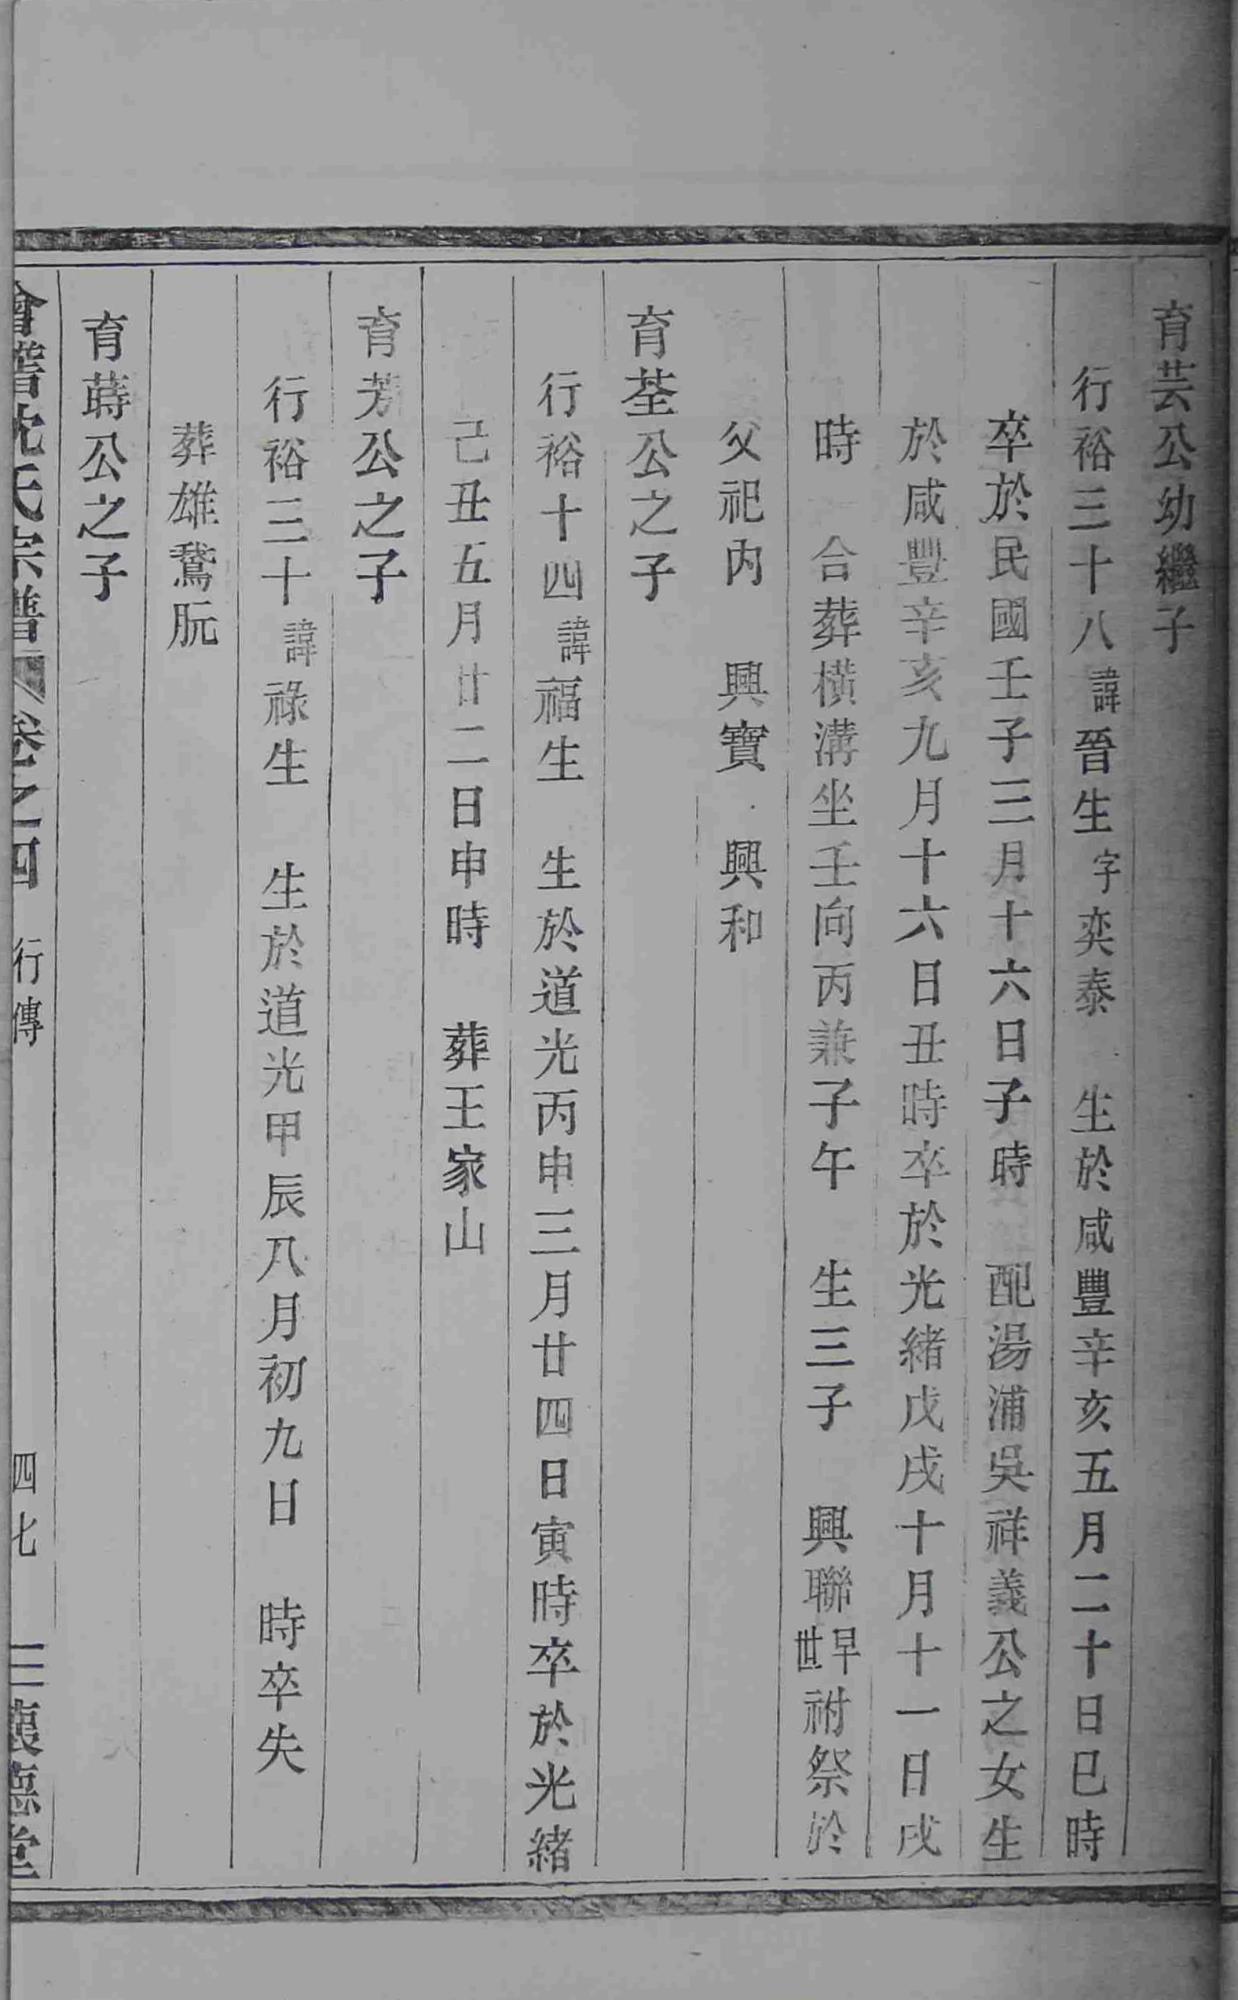 育芸公幼繼子
行裕三十八諱晉生字奕泰　生於咸豐辛亥五月二十日巳時
卒於民國壬子三月十六日子時　配湯浦吳祥義公之女生
於咸豐辛亥九月十六日丑時卒於光緒戊戌十月十一日戌
時　合葬橫溝坐壬向丙兼子午　生三子　興聯早世祔祭於
父祀內　興寶　興和
育荃公之子
行裕十四諱福生　生於道光丙申三月廿四日寅時卒於光緒
己丑五月廿二日申時　葬王家山
育芳公之子
行裕三十諱祿生　生於道光甲辰八月初九日　時卒失
葬雄鵞阮
育蒔公之子
會稽沈氏宗譜　卷之四　行傳　四七　懷德堂